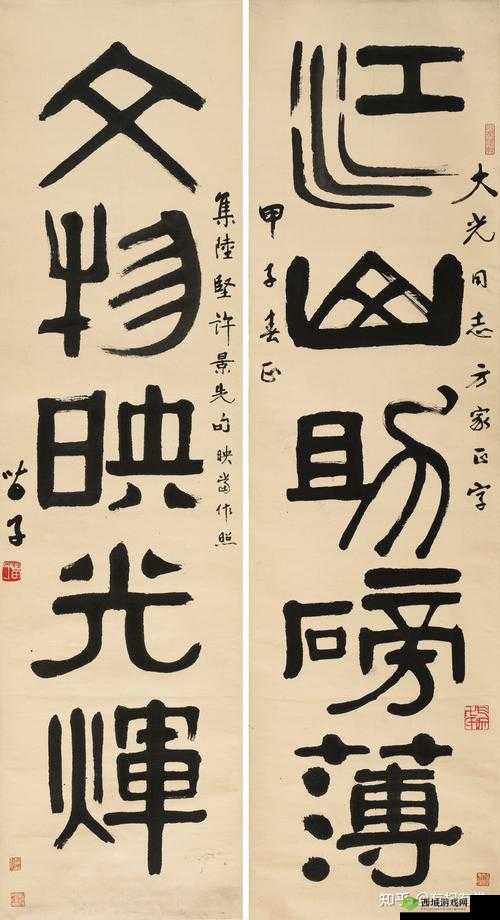 江山助磅薄
大光同志方家正字
甲子春正
文物映光煇
集陸堅許景先句映當作照
知乎
西城游戏网